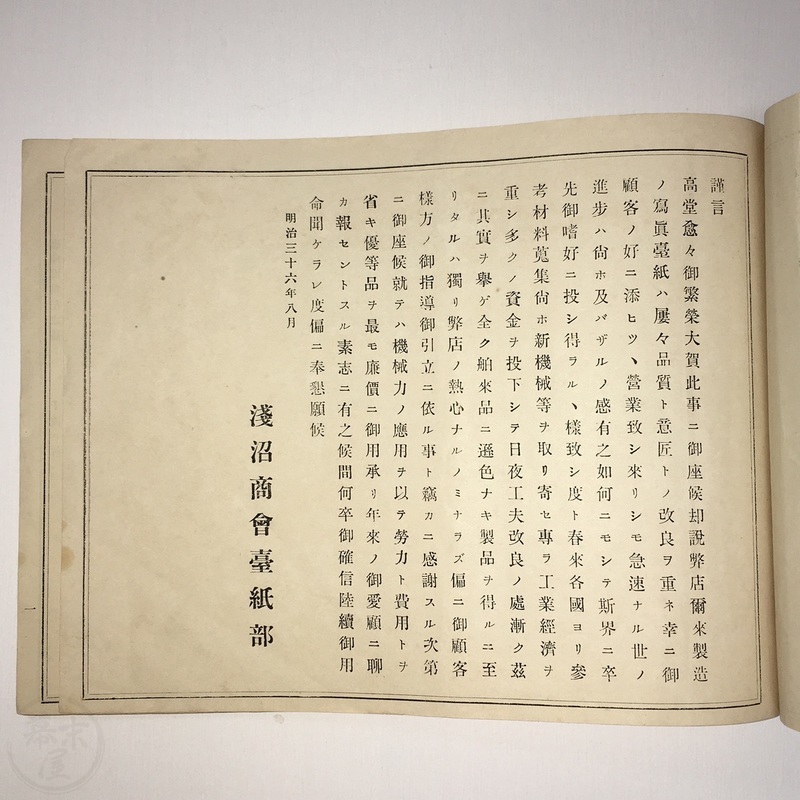 謹言
高堂愈々御繁榮大賀此事ニ御座候却說弊店爾來製造
ノ寫眞臺紙ハ屢々品質ト意匠トノ改良ヲ重ネ幸ニ御
顧客ノ好ニ添ヒツヽ營業致シ來リシモ急速ナル世ノ
進步ハ尙ホ及バザルノ感有之如何ニモシテ斯界ニ卒
先御嗜好ニ投シ得ラルヽ樣致シ度ト春來各國ヨリ參
考材料蒐集尙ホ新機械等ヲ取リ寄セ專ラ工業經濟ヲ
重シ多クノ資金ヲ投下シテ日夜工夫改良ノ處漸ク茲
ニ其實ヲ擧ゲ全ク舶來品ニ遜色ナキ製品ヲ得ルニ至
リタルハ獨リ弊店ノ熱心ナルノミナラズ偏ニ御顧客
樣方ノ御指導御引立ニ依ル事ト竊カニ感謝スル次第
ニ御座候就テハ機械力ノ應用ヲ以テ勞力ト費用トヲ
省キ優等品ヲ最モ廉價ニ御用承リ年來ノ御愛顧ニ聊
カ報セントスル素志ニ有之候間何卒御確信陸續御用
命聞ケラレ度偏ニ奉懇願候
明治三十六年八月
淺沼商會臺紙部
一
幕末屋